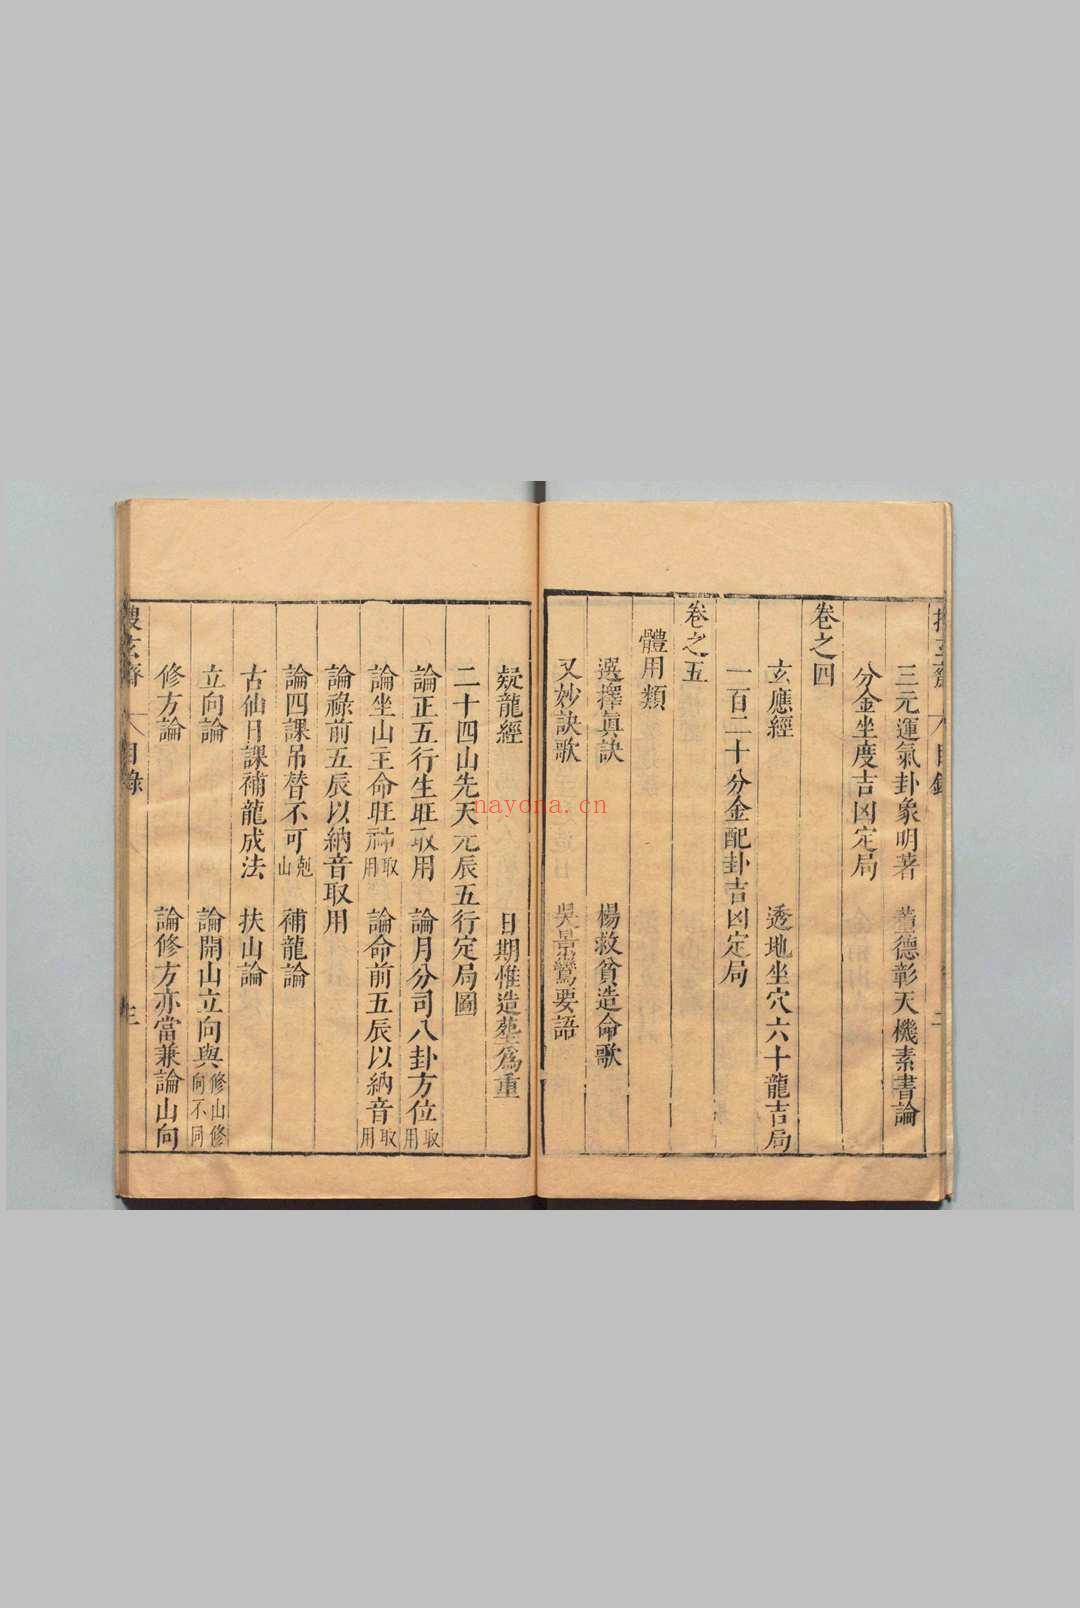 三元運氣卦象明著 董德彰天機素書論
分金坐度吉凶定局
卷之四
玄應經 透地坐穴六十龍吉局
一百二十分金配卦吉凶定局
卷之五
體用類
選擇眞訣 楊救貧造命歌
又妙訣歌 吳景鸞要語
疑龍經 日期惟造塟爲重
二十四山先天元辰五行定局圖
論正五行生旺取用 論月分司八卦方位取用
論坐山主命旺神取用 論命前五辰以納音取用
論祿前五辰以納音取用
論四課吊替不可剋山 補龍論
古仙日課補龍成法 扶山論
立向論 論開山立向與修山修向不同
修方論 論修方亦當兼論山向
搜玄齋 目錄 三
nayona.cn